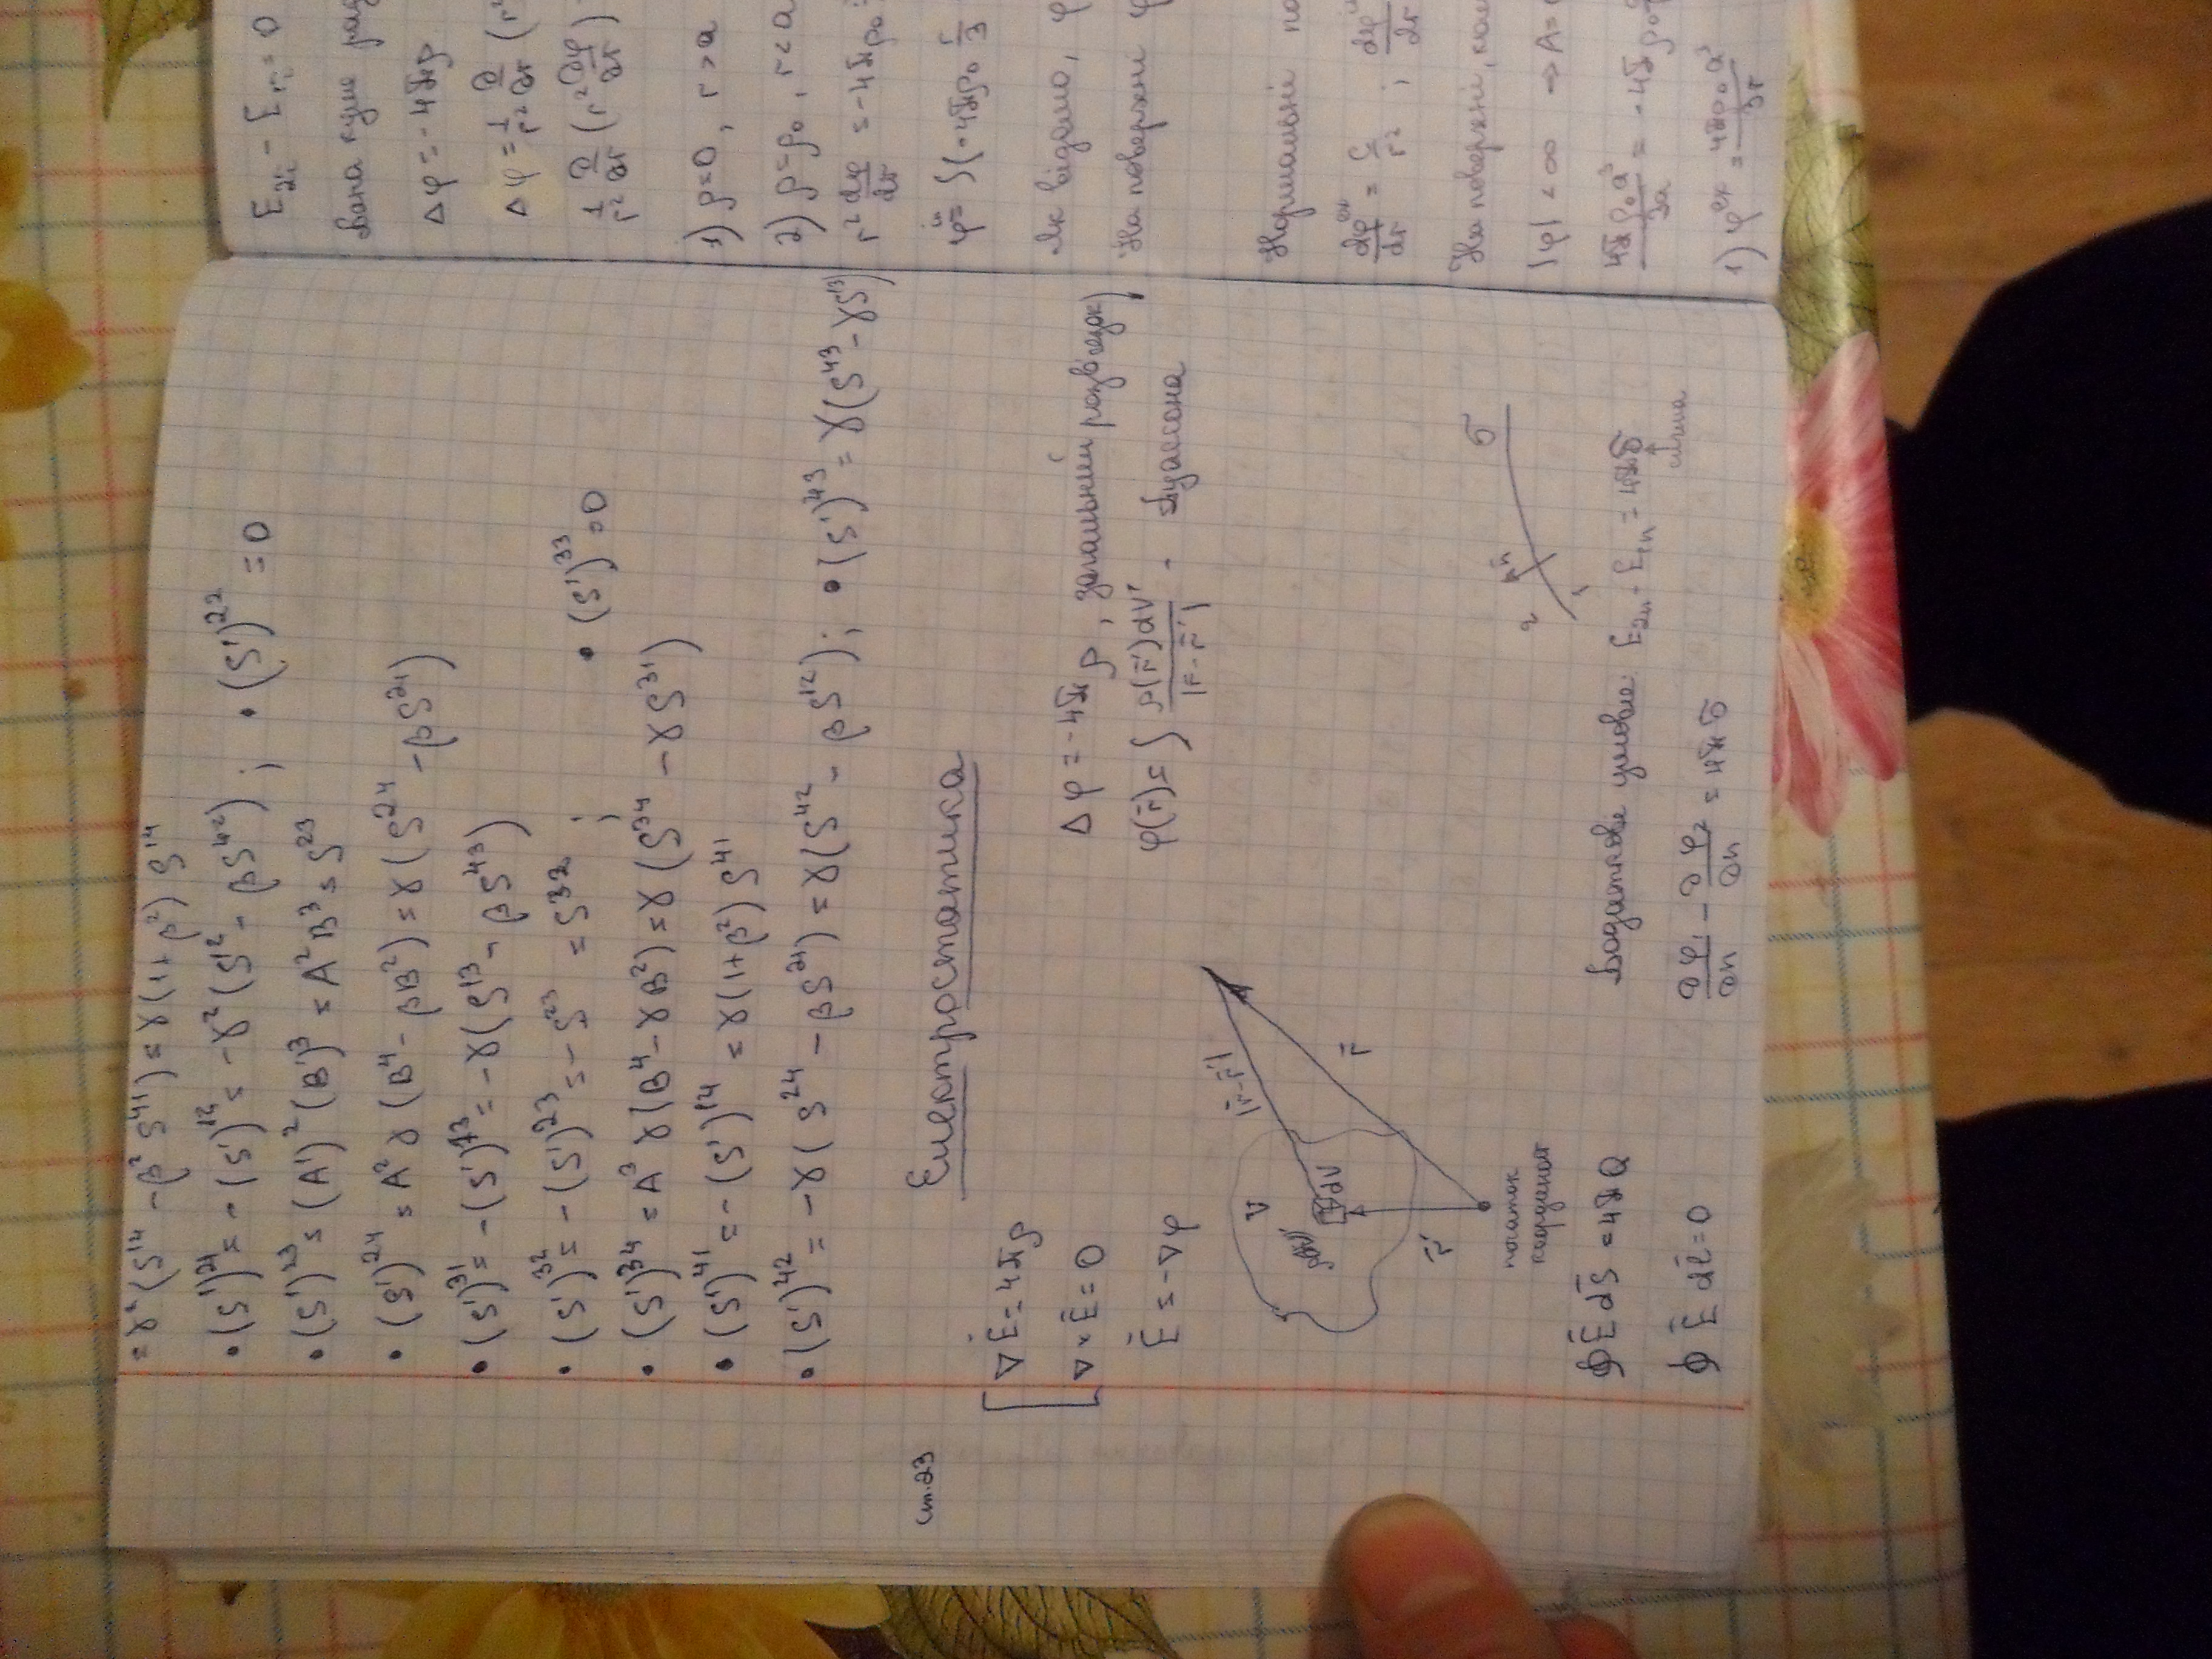 = γ² (S¹⁴ - β² S⁴¹) = γ(1+β²) S¹⁴
• (S')²¹ = - (S')¹² = - γ² (S¹² - β S⁴²) ; • (S')²² = 0
• (S')²³ = (A')² (B')³ = A² B³ = S²³
• (S')²⁴ = A² γ (B⁴ - βB²) = γ (S²⁴ - βS²¹)
• (S')³¹ = - (S')¹³ = - γ (S¹³ - βS⁴³)
• (S')³² = - (S')²³ = - S²³ = S³² ; • (S')³³ = 0
• (S')³⁴ = A³ γ (B⁴ - γB²) = γ (S³⁴ - γS³¹)
• (S')⁴¹ = - (S')¹⁴ = γ(1+β²) S⁴¹
• (S')⁴² = - γ (S²⁴ - βS²¹) = γ(S⁴² - βS¹²) ; • (S')⁴³ = γ(S⁴³ - γS¹³)
ст.23
Електростатика
∇ Ē = 4πρ
∇ × Ē = 0
Ē = - ∇φ
Δφ = - 4πρ, загальний розв'язок
φ(r̄) = ∫ ρ(r̄')dV' / |r̄ - r̄'| - Пуассона
V
dV
|r̄ - r̄'|
r̄
r̄'
початок
координат
2
n̄
1
σ
∮ Ē dS̄ = 4πQ
∮ Ē dl̄ = 0
Додаткові умови: E₂ₙ - E₁ₙ = 4πσ
сигма
∂φ₁/∂n - ∂φ₂/∂n = 4πσ
Δφ = - 4πρ
Δφ = 1/r² ∂/∂r (r²
1/r² ∂/∂r (r² ∂φ/∂r)
1) ρ = 0, r > a
2) ρ = ρ₀, r < a
r² dφ/dr = - 4πρ₀
φⁱⁿ = ∫(- 4πρ₀ r/3
Як відомо, φ
На поверхні φ
Нормальні по
dφᵉˣ/dr = C/r² ; dφⁱⁿ/dr
На поверхні, кол
|φ| < ∞ → A =
4πρ₀a³/3a = - 4πρ₀
1) φᵉˣ = 4πρ₀a³/3r